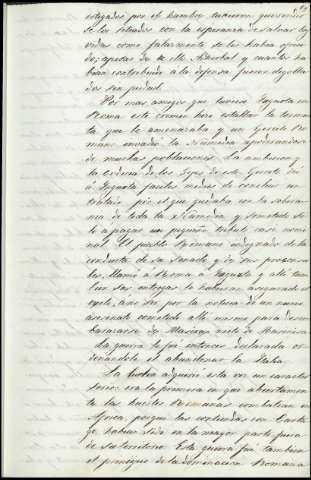 obligados por el hambre tuvieron que rendir
se los sitiados con la esperanza de salvar la
vida como falazmente se les habia ofreci
do; apesar de lo cual Adherbal y cuantos ha
bian contribuido á la defensa fueron degolla
dos sin piedad.
Por mas amigos que tuviera Yugurta en
Roma este crimen hizo estallar la tormen
ta que le amenazaba y un Ejército Ro
mano invadió la Numidia apoderandose
de muchas poblaciones. La ambicion y
la codicia de los Gefes de este Ejército dió
á Yugurta faciles medios de concluir un
tratado por el que quedaba con la sobera
nia de toda la Numidia y sometido só
lo á pagar un pequeño tributo casi nomi
nal. El pueblo Romano indignado de la
conducta de su Senado y de sus proconsu
les, llamó á Roma á Yugurta y allí tam
bien sus intrigas le hubieran asegurado el
éxito, á no ser por la noticia de un nuevo
asesinato cometido allí mismo para desem
barazarse de Masiva nieto de Masinisa
La guerra le fué entonces declarada or
denandole el abandonar la Italia.
La lucha adquirió esta vez un caracter
sério: era la primera en que abiertamen
te las huestes Romanas combatian en
Africa, porque las contiendas con Carta
go habian sido en la mayor parte fuera
de su territorio. Esta guerra fué tambien
el principio de la dominacion Romana